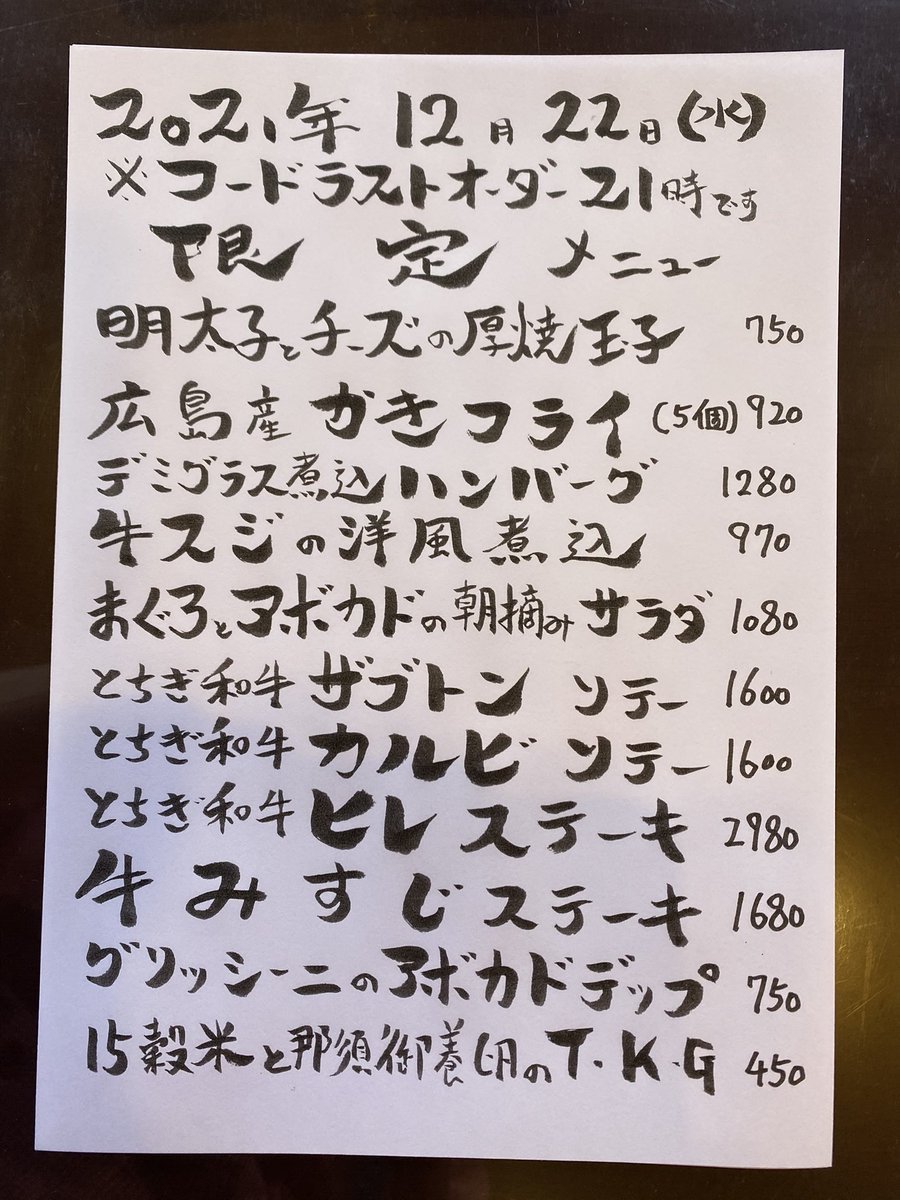 2021年 12月 22日(水)
※フードラストオーダー21時です
限定メニュー
明太子とチーズの厚焼玉子 750
広島産かきフライ(5個)920
デミグラス煮込ハンバーグ 1280
牛スジの洋風煮込 970
まぐろとアボカドの朝摘みサラダ 1080
とちぎ和牛ザブトン ソテー 1600
とちぎ和牛カルビ ソテー 1600
とちぎ和牛ヒレステーキ 2980
牛みすじステーキ 1680
グリッシーニのアボカドディップ 750
15穀米と那須御養卵のT・K・G 450